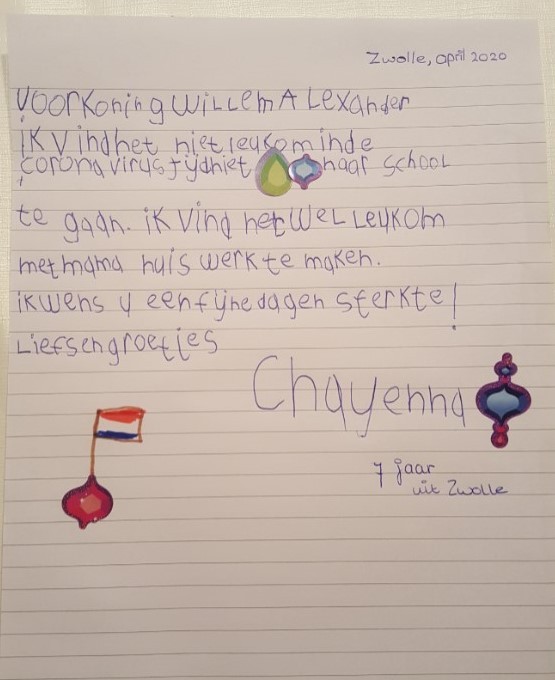 Zwolle, april 2020
Voor Koning WiLLem ALexander
IK Vind het niet leuk om in de
corona virus tijd niet naar school
te gaan. ik Vind het WeL LeuK om
met mama huis werk te maken.
ik wens u een fijne dagen sterkte!
Liefs en groetjes
Chayenna
7 jaar
uit Zwolle